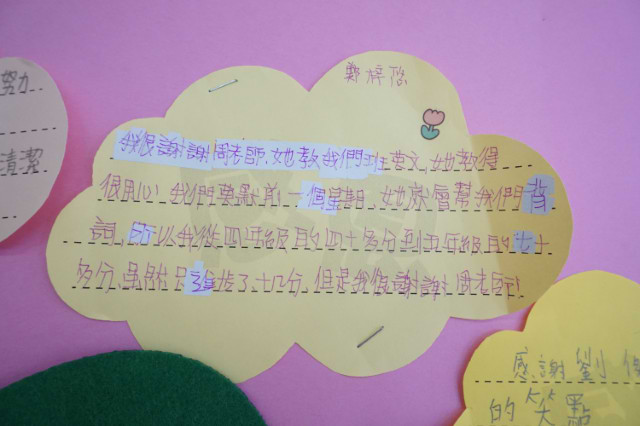 努力
清潔
鄭梓
我很謝謝周老師,她教我們班英文,她教得
很用心,我們要默前一個星期,她就會幫我們背
詞,所以我從四年級的四十多分到五年級的七十
多分,雖然只進技了十几分,但是我很謝謝周老師!
感謝劉
的笑點